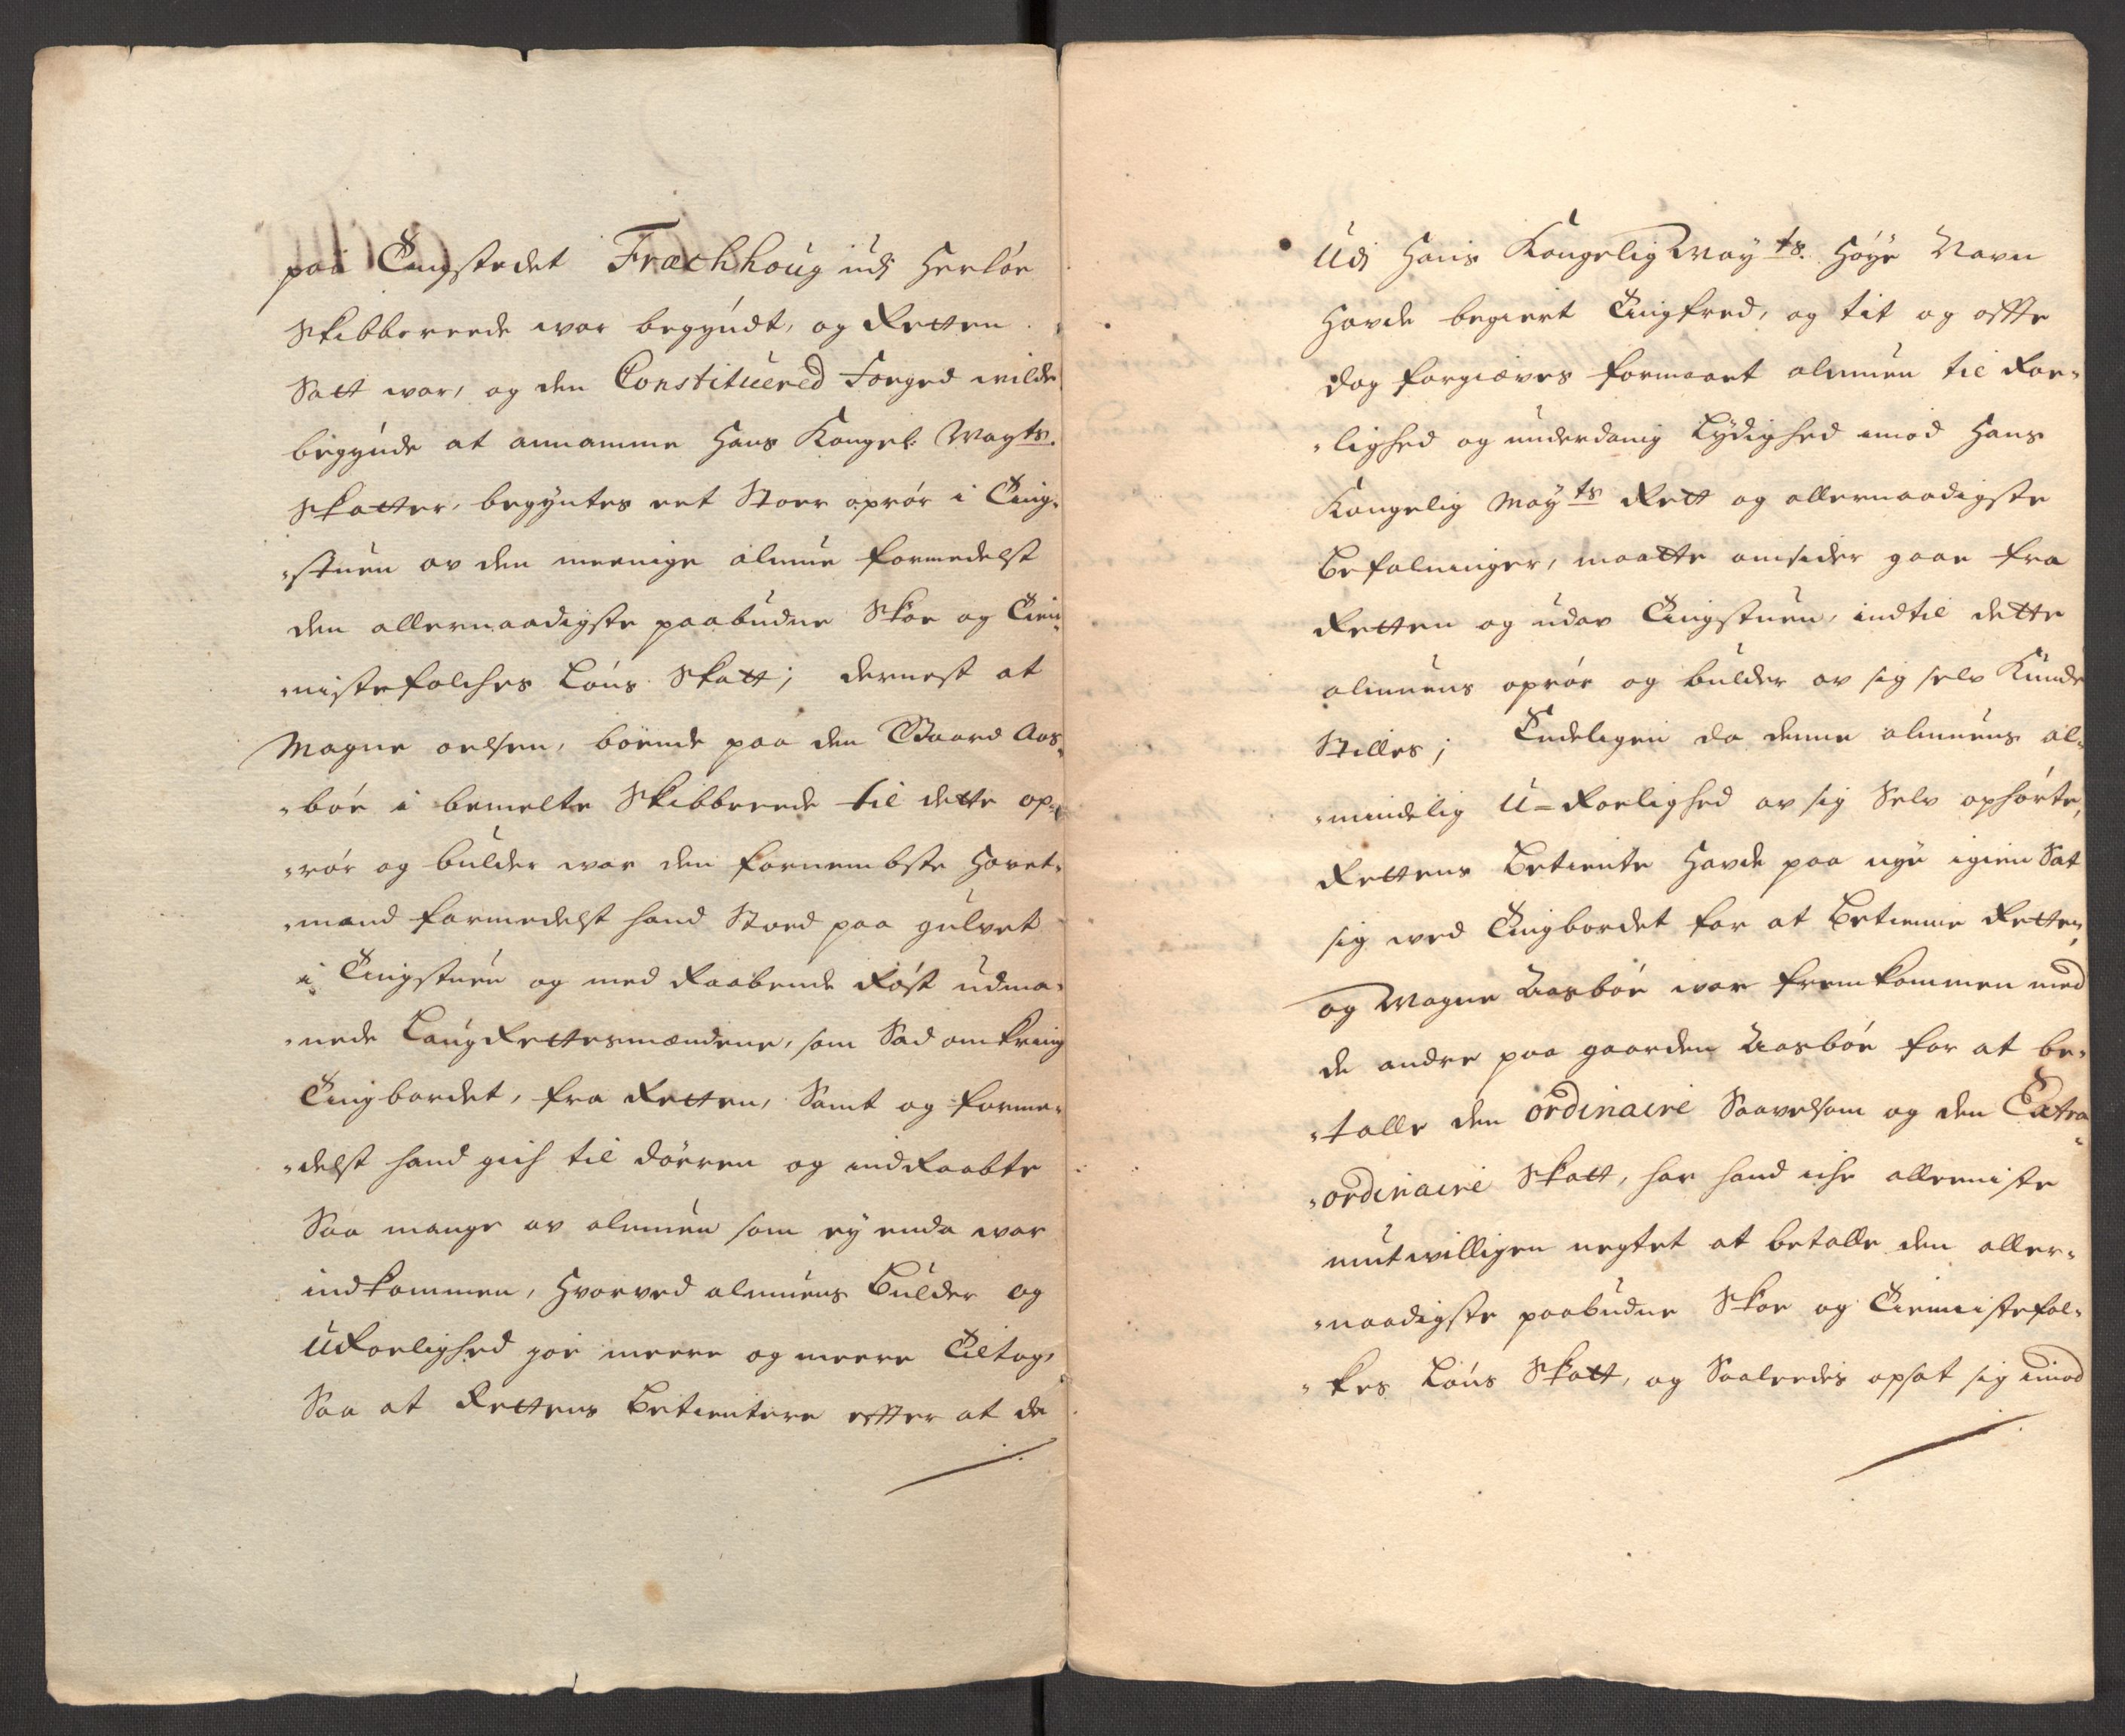 paa Tingstedet Fræchhoug udj Herløe
Skibbereede war begyndt, og Retten
Satt war, og den Constituered Foeged wilde
begynde at annamme Hans Kongel: Mayts.
Skatter, begyntes eet Stoer oprør i Ting-
stuen av den meenige almue formedelst
den allernaadigste paabudne Skoe og Tien-
nistefolches Løns Skatt; dernest at
Magne oelsen, boende paa den Gaard Aas-
bøe i bemelte Skibbrede til dette op-
rør og bulder war den fornembste Hovet-
mand formedelst hand Stoed paa gulvet
i Tingstuen og med Raabende Røst udma-
nede LaugRettesmændene, som Sad omkring
Tingbordet, fra Retten, Samt og forme-
delst hand gich til dørren og indRaabte
Saa mange av almuen som ey enda war
indkommen, Hvorved almuens Bulder og
URoelighed joe meere og meere Tiltog,
Saa at Rettens Betientere effter at de
Udj Hans Kongelig Mayts. Høye Navn
Havde begiert Tingfred, og tit og offte
dog forgiæves formaant almuen til Roe-
lighed og underdanig Lydighed imod Hans
Kongelig Mayts Rett og allernaadigste
Befalninger, maatte omsider gaae fra
Retten og udav Tingstuen, indtil dette
almuens oprør og bulder av sig selv Kunde
Stilles; Endeligen da denne almuens al-
mindelig U-Roelighed av sig Selv ophørte,
Rettens Betiente Havde paa nye igien Sat
sig wed Tingbordet for at Betienne Retten,
og Magne Aasbøe war fremkommen med
de andre paa gaarden Aasbøe for at be-
talle den ordinaire Saavelsom og den Extra-
ordinaire Skatt, har hand iche alleeniste
mutwilligen negtet at betalle den aller-
naadigste paabudne Skoe og Tiennistefol-
kes Løns Skatt, og Saaleedis opsat sig imod